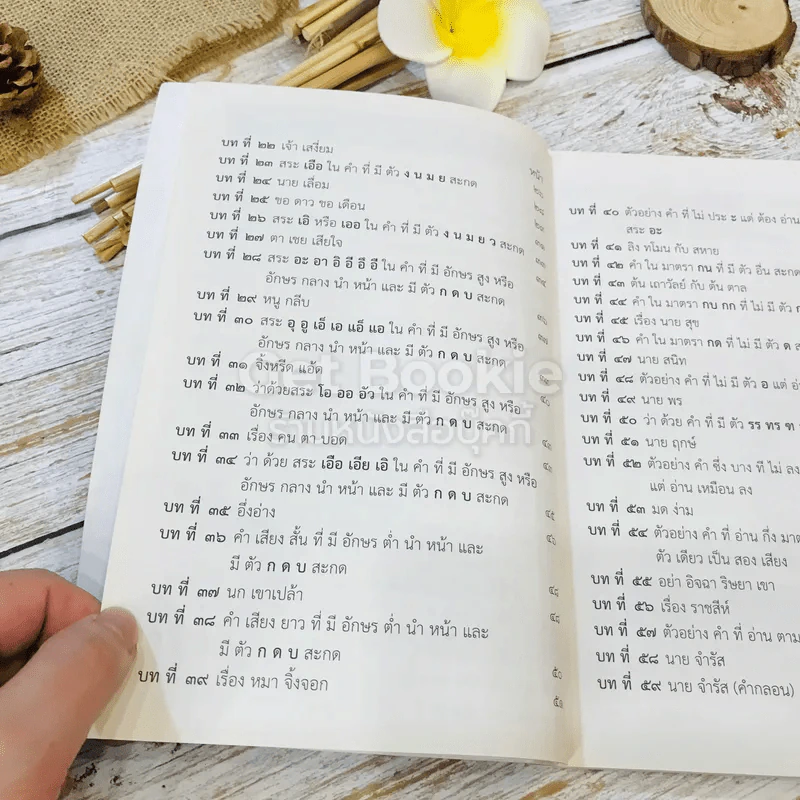 หน้า
บท ที่ ๒๒ เจ้า เสงี่ยม
บท ที่ ๒๓ สระ เอือ ใน คำ ที่ มี ตัว ง น ม ย สะกด
บท ที่ ๒๔ นาย เลื่อม
บท ที่ ๒๕ ขอ ดาว ขอ เดือน
บท ที่ ๒๖ สระ เอิ หรือ เออ ใน คำ ที่ มี ตัว ง น ม ย ว สะกด
บท ที่ ๒๗ ตา เชย เสียใจ
บท ที่ ๒๘ สระ อะ อา อิ อี อึ อื ใน คำ ที่ มี อักษร สูง หรือ
อักษร กลาง นำ หน้า และ มี ตัว ก ด บ สะกด
บท ที่ ๒๙ หนู กลีบ
บท ที่ ๓๐ สระ อุ อู เอ็ เอ แอ็ แอ ใน คำ ที่ มี อักษร สูง หรือ
อักษร กลาง นำ หน้า และ มี ตัว ก ด บ สะกด
บท ที่ ๓๑ จิ้งหรีด แอ้ด
บท ที่ ๓๒ ว่าด้วยสระ โอ ออ อัว ใน คำ ที่ มี อักษร สูง หรือ
อักษร กลาง นำ หน้า และ มี ตัว ก ด บ สะกด
บท ที่ ๓๓ เรื่อง คน ตา บอด
บท ที่ ๓๔ ว่า ด้วย สระ เอือ เอีย เอิ ใน คำ ที่ มี อักษร สูง หรือ
อักษร กลาง นำ หน้า และ มี ตัว ก ด บ สะกด
บท ที่ ๓๕ อึ่งอ่าง ๔๕
บท ที่ ๓๖ คำ เสียง สั้น ที่ มี อักษร ต่ำ นำ หน้า และ ๔๖
มี ตัว ก ด บ สะกด
บท ที่ ๓๗ นก เขาเปล้า ๔๘
บท ที่ ๓๘ คำ เสียง ยาว ที่ มี อักษร ต่ำ นำ หน้า และ ๔๘
มี ตัว ก ด บ สะกด
บท ที่ ๓๙ เรื่อง หมา จิ้งจอก ๕๐
๕๑
บท ที่ ๔๐ ตัวอย่าง คำ ที่ ไม่ ประ ะ แต่ ต้อง อ่าน
สระ อะ
บท ที่ ๔๑ ลิง ทโมน กับ สหาย
บท ที่ ๔๒ คำ ใน มาตรา กน ที่ มี ตัว อื่น สะกด
บท ที่ ๔๓ ต้น เถาวัลย์ กับ ต้น ตาล
บท ที่ ๔๔ คำ ใน มาตรา กบ กก ที่ ไม่ มี ตัว
บท ที่ ๔๕ เรื่อง นาย สุข
บท ที่ ๔๖ คำ ใน มาตรา กด ที่ ไม่ มี ตัว ด
บท ที่ ๔๗ นาย สนิท
บท ที่ ๔๘ ตัวอย่าง คำ ที่ ไม่ มี ตัว อ แต่
บท ที่ ๔๙ นาย พร
บท ที่ ๕๐ ว่า ด้วย คำ ที่ มี ตัว รร ทร ฑ
บท ที่ ๕๑ นาย ฤกษ์
บท ที่ ๕๒ ตัวอย่าง คำ ซึ่ง บาง ที ไม่ ลง
แต่ อ่าน เหมือน ลง
บท ที่ ๕๓ มด ง่าม
บท ที่ ๕๔ ตัวอย่าง คำ ที่ อ่าน กึ่ง
ตัว เดียว เป็น สอง เสียง
บท ที่ ๕๕ อย่า อิจฉา ริษยา เขา
บท ที่ ๕๖ เรื่อง ราชสีห์
บท ที่ ๕๗ ตัวอย่าง คำ ที่ อ่าน ตาม
บท ที่ ๕๘ นาย จำรัส
บท ที่ ๕๙ นาย จำรัส (คำกลอน)
Get Bookie
ร้านหนังสือบุ๊คกี้